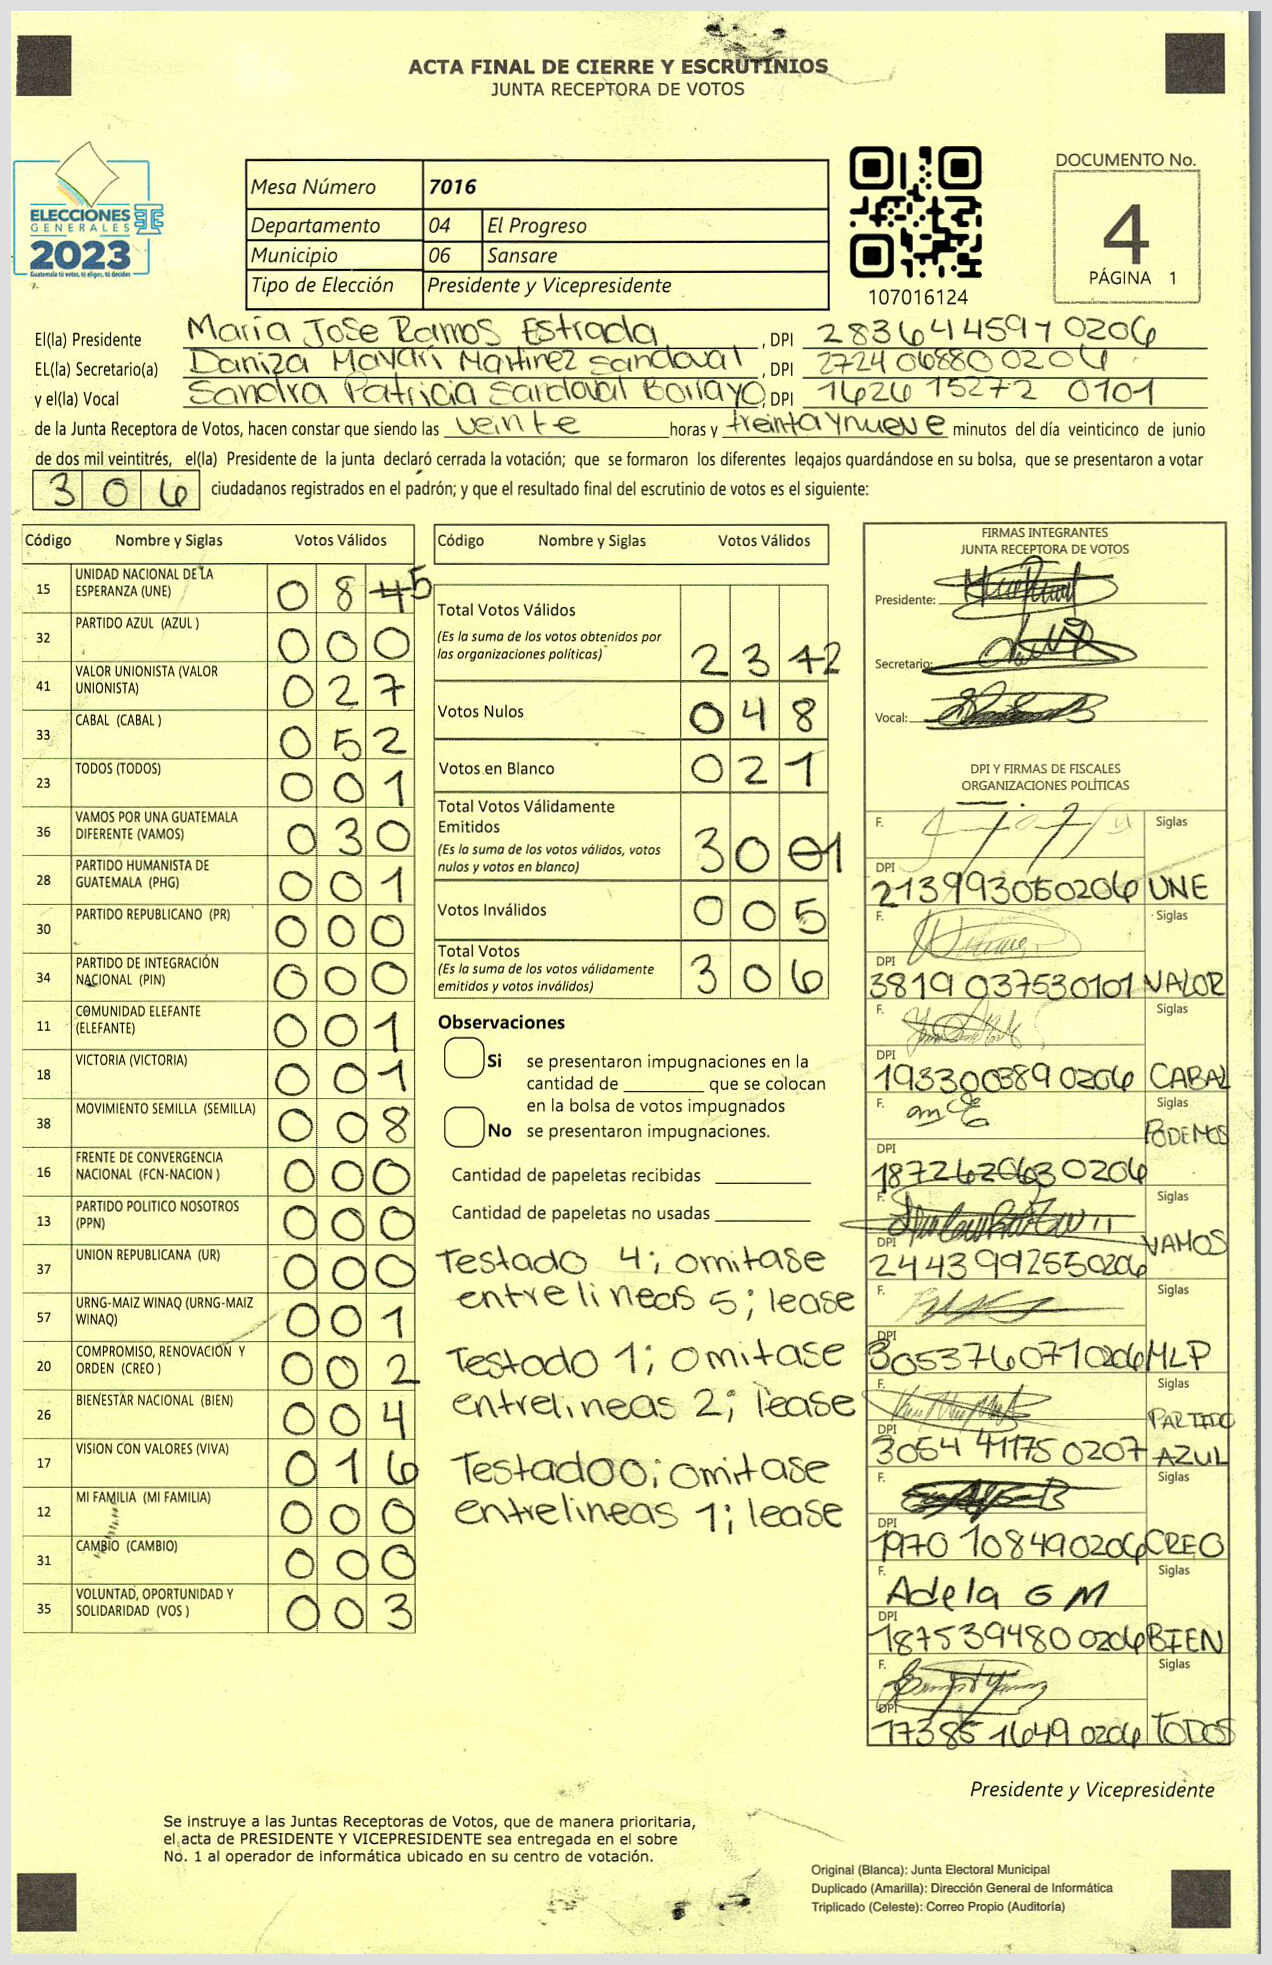 ACTA FINAL DE CIERRE Y ESCRUTINIOS
JUNTA RECEPTORA DE VOTOS
ELECCIONES
GENERALES
2023
Guatemala tú votas, tú eliges, tú decides
Mesa Número 7016
Departamento 04 El Progreso
Municipio 06 Sansare
Tipo de Elección Presidente y Vicepresidente
107016124
DOCUMENTO No.
4
PÁGINA 1
El(la) Presidente María Jose Ramos Estrada, DPI 2836445970206
EL(la) Secretario(a) Daniza Mayarí Martinez Sandoval, DPI 2724068800206
y el(la) Vocal Sandra Patricia Sandoval Borrayo, DPI 1626152720101
de la Junta Receptora de Votos, hacen constar que siendo las veinte horas y treintaynueve minutos del día veinticinco de junio
de dos mil veintitrés, el(la) Presidente de la junta declaró cerrada la votación; que se formaron los diferentes legajos guardándose en su bolsa, que se presentaron a votar
306 ciudadanos registrados en el padrón; y que el resultado final del escrutinio de votos es el siguiente:
Código Nombre y Siglas Votos Válidos
15 UNIDAD NACIONAL DE LA ESPERANZA (UNE) 0 8 4 5
32 PARTIDO AZUL (AZUL ) 0 0 0
41 VALOR UNIONISTA (VALOR UNIONISTA) 0 2 7
33 CABAL (CABAL ) 0 5 2
23 TODOS (TODOS) 0 0 1
36 VAMOS POR UNA GUATEMALA DIFERENTE (VAMOS) 0 3 0
28 PARTIDO HUMANISTA DE GUATEMALA (PHG) 0 0 1
30 PARTIDO REPUBLICANO (PR) 0 0 0
34 PARTIDO DE INTEGRACIÓN NACIONAL (PIN) 0 0 0
11 COMUNIDAD ELEFANTE (ELEFANTE) 0 0 1
18 VICTORIA (VICTORIA) 0 0 1
38 MOVIMIENTO SEMILLA (SEMILLA) 0 0 8
16 FRENTE DE CONVERGENCIA NACIONAL (FCN-NACION ) 0 0 0
13 PARTIDO POLITICO NOSOTROS (PPN) 0 0 0
37 UNION REPUBLICANA (UR) 0 0 0
57 URNG-MAIZ WINAQ (URNG-MAIZ WINAQ) 0 0 1
20 COMPROMISO, RENOVACIÓN Y ORDEN (CREO ) 0 0 2
26 BIENESTAR NACIONAL (BIEN) 0 0 4
17 VISION CON VALORES (VIVA) 0 1 6
12 MI FAMILIA (MI FAMILIA) 0 0 0
31 CAMBIO (CAMBIO) 0 0 0
35 VOLUNTAD, OPORTUNIDAD Y SOLIDARIDAD (VOS ) 0 0 3
Código Nombre y Siglas Votos Válidos
Total Votos Válidos 2 3 1 2
(Es la suma de los votos obtenidos por
las organizaciones políticas)
Votos Nulos 0 4 8
Votos en Blanco 0 2 1
Total Votos Válidamente
Emitidos 3 0 0 1
(Es la suma de los votos válidos, votos
nulos y votos en blanco)
Votos Inválidos 0 0 5
Total Votos 3 0 6
(Es la suma de los votos válidamente
emitidos y votos inválidos)
Observaciones
Si se presentaron impugnaciones en la
cantidad de ________ que se colocan
en la bolsa de votos impugnados
No se presentaron impugnaciones.
Cantidad de papeletas recibidas
Cantidad de papeletas no usadas
Testado 4; omitase
entrelineas 5; lease
Testado 1; omitase
entrelineas 2; lease
Testado0; omitase
entrelineas 1; lease
FIRMAS INTEGRANTES
JUNTA RECEPTORA DE VOTOS
Presidente:
Secretario:
Vocal:
DPI Y FIRMAS DE FISCALES
ORGANIZACIONES POLÍTICAS
F. Siglas
DPI
2139930500206 UNE
F. Siglas
DPI
3819037530101 VALOR
F. Siglas
DPI
1933003890206 CABAL
F. Siglas
PODEMOS
DPI
1872620630206
F. Siglas
DPI VAMOS
2443992550206
F. Siglas
DPI
3053760710206 MLP
F. Siglas
PARTIDO
DPI
3054411750207 AZUL
F. Siglas
DPI
1970108490206 CREO
F. Siglas
Adela G M
DPI
1875394800206 BIEN
F. Siglas
DPI
1738516490206 TODOS
Presidente y Vicepresidente
Se instruye a las Juntas Receptoras de Votos, que de manera prioritaria,
el acta de PRESIDENTE Y VICEPRESIDENTE sea entregada en el sobre
No. 1 al operador de informática ubicado en su centro de votación.
Original (Blanca): Junta Electoral Municipal
Duplicado (Amarilla): Dirección General de Informática
Triplicado (Celeste): Correo Propio (Auditoría)